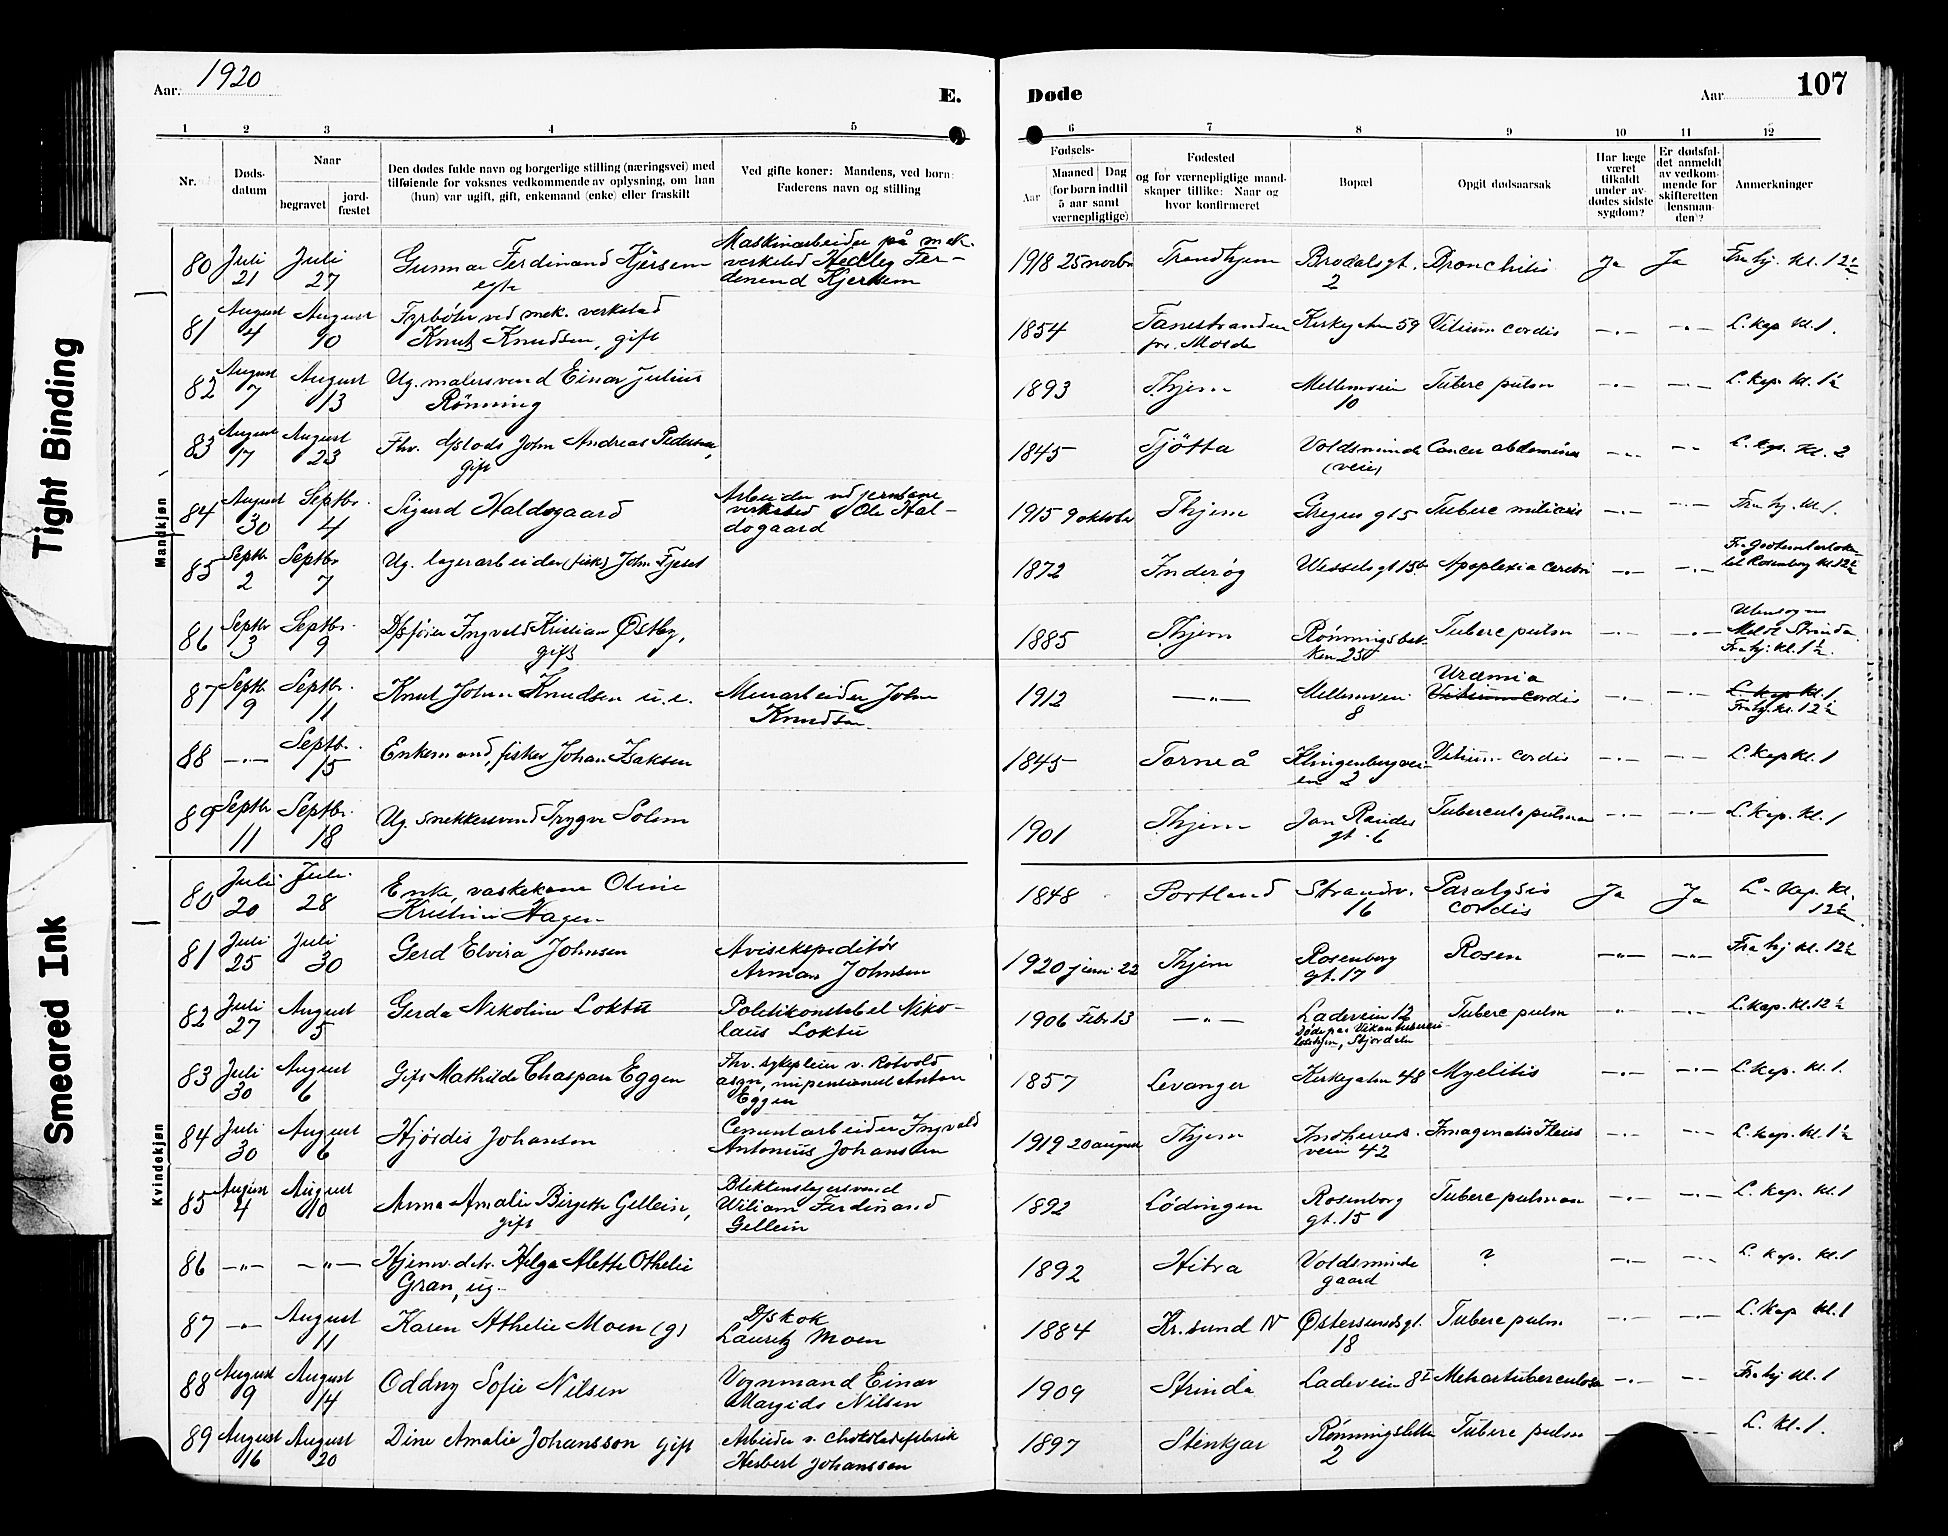 Aar. 1920
E.
Døde
Aar
107
1 2 3 4 5 6 7 8 9 10 11 12
Nr.
Døds-
datum
Naar
begravet
jord-
fæstet
Den dødes fulde navn og borgerlige stilling (næringsvei) med
tilføiende for voksnes vedkommende av oplysning, om han
(hun) var ugift, gift, enkemand (enke) eller fraskilt
Ved gifte koner: Mandens, ved børn:
Faderens navn og stilling
Fødsels-
Aar
Maaned Dag
(for børn indtil
5 aar samt
værnepligtige)
Fødested
og for værnepligtige mand-
skaper tillike: Naar og
hvor konfirmeret
Bopæl
Opgit dødsaarsak
Har læge
været
tilkaldt
under av-
dødes sidste
sygdom?
Er dødsfal-
det anmeldt
av vedkom-
mende for
skifteretten
(lensman-
den)?
Anmerkninger
Tight Binding
Smeared Ink
Mandkjøn
80 Juli 21 Juli 27 Gunnar Ferdinand Kjersem
egte
Maskinarbeider på mek.
verksted Hedley Fer-
dinend Kjersem
1918 25 novbr Trondhjem Brodalsgt. 2 Bronchitis Ja Ja Fra hj. kl. 12½
81 August 4 August 10 Fyrbøter ved mek. verkstad
Knut Knudsen, gift
1854 Fanestranden
pr. Molde
Kirkegaten 59 Vitium cordis —"— —"— L. kap kl. 1.
82 August 7 August 13 Ug. malersvend Einar Julius
Rønning
1893 Thjem Mellemveien
10
Tuberc pulm —"— —"— L. kap. kl. 1½
83 August 17 August 23 Fhv. d/s lods John Andreas Pedersen,
gift
1845 Tjøtta Voldsminde
(veien)
Cancer abdominis —"— —"— L. kap. kl. 2
84 August 30 Septbr. 4 Sigurd Haldogaard
Arbeider ved jernbane
verksted Ole Hal-
dogaard
1915 9 oktober Thjem Gregus gt 5 Tuberc miliaris —"— —"— Fra hj. kl. 1.
85 Septbr 2 Septbr 7 Ug. lagerarbeider (fisk) John Fjeset
1872 Inderøy Wessels gt 15b Apoplexia cerebri —"— —"—
til Rosenborg kl. 12½
86 Septbr 3 Septbr. 9 D/s fører Ingvald Kristian Østby,
gift
1885 Thjem Rønningsbak-
ken 25b
Tuberc pulm —"— —"— Utensogns
Meldt Strinda.
Fra hj. kl. 1½.
87 Septbr. 9 Septbr. 11 Knut Johan Knudsen u.e.
Murarbeider John
Knudsen
1912 —"— Mellemveien
8
Uræmia
Vitium cordis
—"— —"— L. kap kl. 1
Fra hj. kl. 12½
88 —"— Septbr. 15 Enkemand, fisker Johan Isaksen
1845 Torneå Klingenbergvei-
en 2
Vitium cordis —"— —"— L. kap kl. 1
89 Septbr 11 Septbr. 18 Ug. snekkersvend Trygve Solem
1901 Thjem Jon Raudes
gt. 6
Tuberculs pulmon —"— —"— L. kap. kl. 1
Kvindekjøn
80 Juli 20 Juli 28 Enke, vaskekone Oline
Kristine Hagen
1848 Portland Strandv.
16
Paralysis
cordis
Ja Ja L. kap. kl.
12½
81 Juli 25 Juli 30 Gerd Elvira Johnsen
Avisekspeditør
Arman Johnsen
1920 juni 22 Thjem Rosenborg
gt. 17
Rosen —"— —"— Fra hj kl. 12½
82 Juli 27 August 5 Gerda Nikoline Loktu
Politikonstabel Niko-
laus Loktu
1906 Febr. 13 —"— Ladeveien 12
Død paa Vikan tuberku-
losehjem, Stjørdalen
Tuberc pulm —"— —"— L. kap. kl. 12½
83 Juli 30 August 6 Gift Mathilde Chaspara Eggen
Fhv. sykepleier v. Rotvold
asyl, nu pensionist Anton
Eggen
1857 Levanger Kirkegaten 48 Myelitis —"— —"— L. kap. kl. 1.
84 Juli 30 August 6 Hjørdis Johansen
Cementarbeider Ingvald
Antonius Johansen
1919 20 august Thjem Indherreds-
veien 42
—"— —"— L. kap. kl. 1½
85 August 4 August 10 Anna Amalie Birgitte Gellein,
gift
Blikkenslagersvend
Wiliam Ferdinand
Gellein
1892 Lødingen Rosenborg
gt. 15
Tuberc pulmon —"— —"— L. kap. kl. 1
86 —"— —"— Hjemv. dtr. Helga Alette Othelie
Gran, ug.
1892 Hitra Voldsminde
gaard
? —"— —"— L. kap. kl. 1
87 —"— August 11 Karen Athelie Moen (g)
D/s kok
Lauritz Moen
1884 Kr.sund N Østersundsgt.
18
Tuberc pulm. —"— —"— L. kap kl. 1
88 August 9 August 14 Oddny Sofie Nilsen
Vognmand Einar
Margido Nilsen
1909 Strinda Ladeveien 8 I —"— —"— Fra hj kl. 1
89 August 16 August 20 Dine Amalie Johansson gift
Arbeider v. chokoladefabrik
Herbert Johanssen
1897 Stenkjær Rønningsletta
2
Tuberc pulm —"— —"— L. kl. 1.